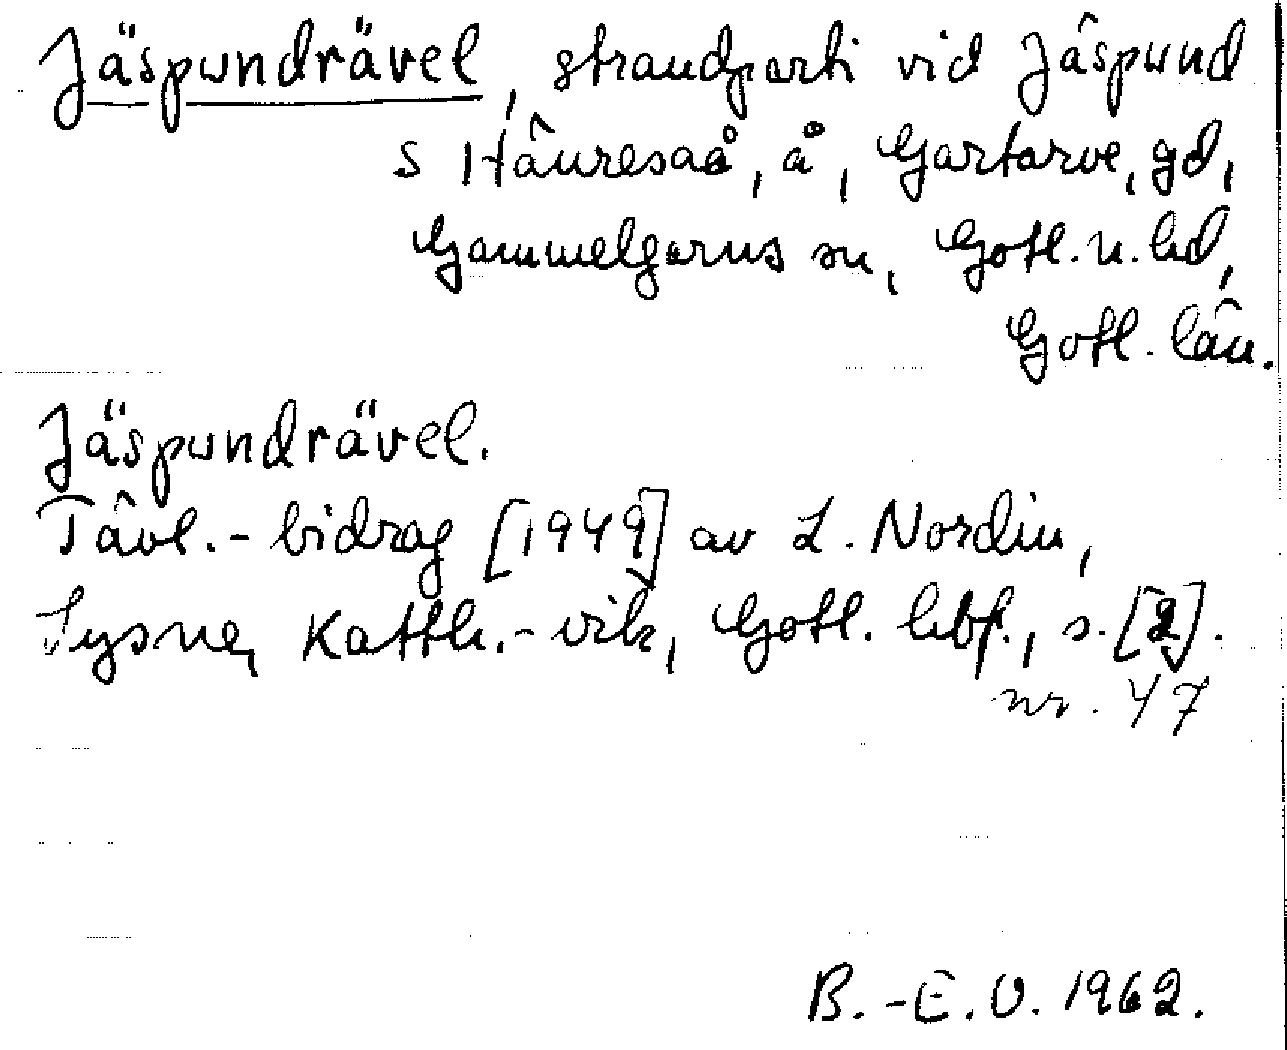 Jäspundrävel, strandparti vid Jäspund
s Häuresaå, å, Gartarve, gd,
Gammelgarns sn, Gotl. n. hd,
Gotl. län.
Jäspundrävel.
Tävl.-bidrag [1949] av L. Nordin,
Sysne, Katth.-vik, Gotl. hbf., s. [2].
nr. 47
B.-E. O. 1962.